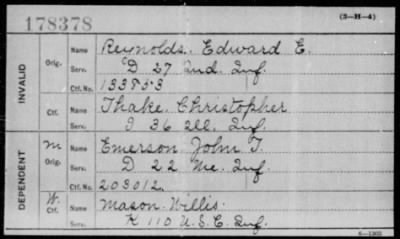 178378
(3-H-4)
INVALID
Orig. Name Reynolds. Edward E.
Serv. D 27 Ind. Inf.
Ctf. No. 133853
Ctf. Name Thake. Christopher
Serv. I 36 Ill. Inf.
DEPENDENT
M Orig. Name Emerson John T.
Serv. D 22 Me. Inf.
Ctf. No. 203012.
W. Ctf. Name Mason. Willis.
Serv. K 110 U.S.C. Inf.
6-1303